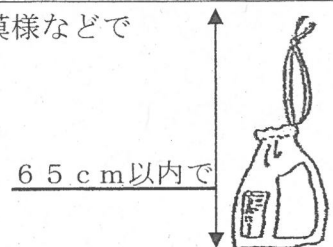 模様などで
６５ｃｍ以内で